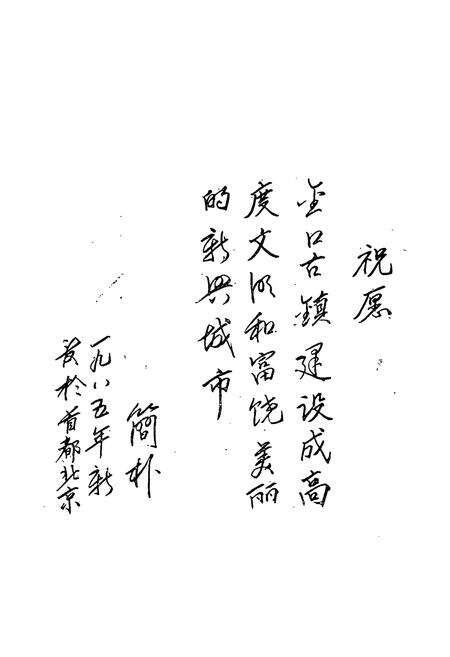 祝愿
金口古鎮建设成高
度文明和富饶美丽
的新兴城市
简朴
一九八五年新
春於首都北京